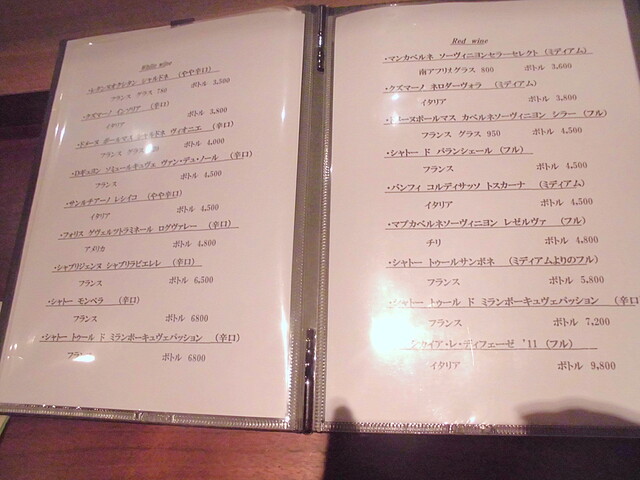 White wine
シャルドネ (やや辛口)
フランス グラス 780 ボトル 3,500
・クズマーノ インソリア (辛口)
イタリア ボトル 3,800
・ドメーヌ ポールマス シャルドネ ヴィオニエ (辛口)
フランス グラス ボトル 4,000
ソミュールキュヴェ ヴァン・デュ・ノール (辛口)
フランス ボトル 4,500
・サンルチアーノ レシイコ (やや辛口)
イタリア ボトル 4,500
・フォリス グヴェルツトラミネール ログヴァレー (辛口)
アメリカ ボトル 4,800
・シャブリジェンヌ シャブリラピエレレ (辛口)
フランス ボトル 6,500
・シャトー モンペラ (辛口)
フランス ボトル 6800
・シャトー トゥール ド ミランボーキュヴェパッション (辛口)
フランス ボトル 6800
Red wine
・マンカベルネ ソーヴィニヨンセラーセレクト (ミディアム)
南アフリカ グラス 800 ボトル 3,600
・クズマーノ ネロダーヴォラ (ミディアム)
イタリア ボトル 3,800
・ドメーヌポールマス カベルネソーヴィニヨン シラー (フル)
フランス グラス 950 ボトル 4,500
・シャトー ド パランシェール (フル)
フランス ボトル 4,500
・バンフィ コルディサッソ トスカーナ (ミディアム)
イタリア ボトル 4,500
・マプカベルネソーヴィニヨン レゼルヴァ (フル)
チリ ボトル 4,800
・シャトー トゥールサンボネ (ミディアムよりのフル)
フランス ボトル 5,800
・シャトー トゥール ド ミランボーキュヴェパッション (辛口
フランス ボトル 7,200
シカイア・レ・ディフェーゼ '11 (フル)
イタリア ボトル 9,800